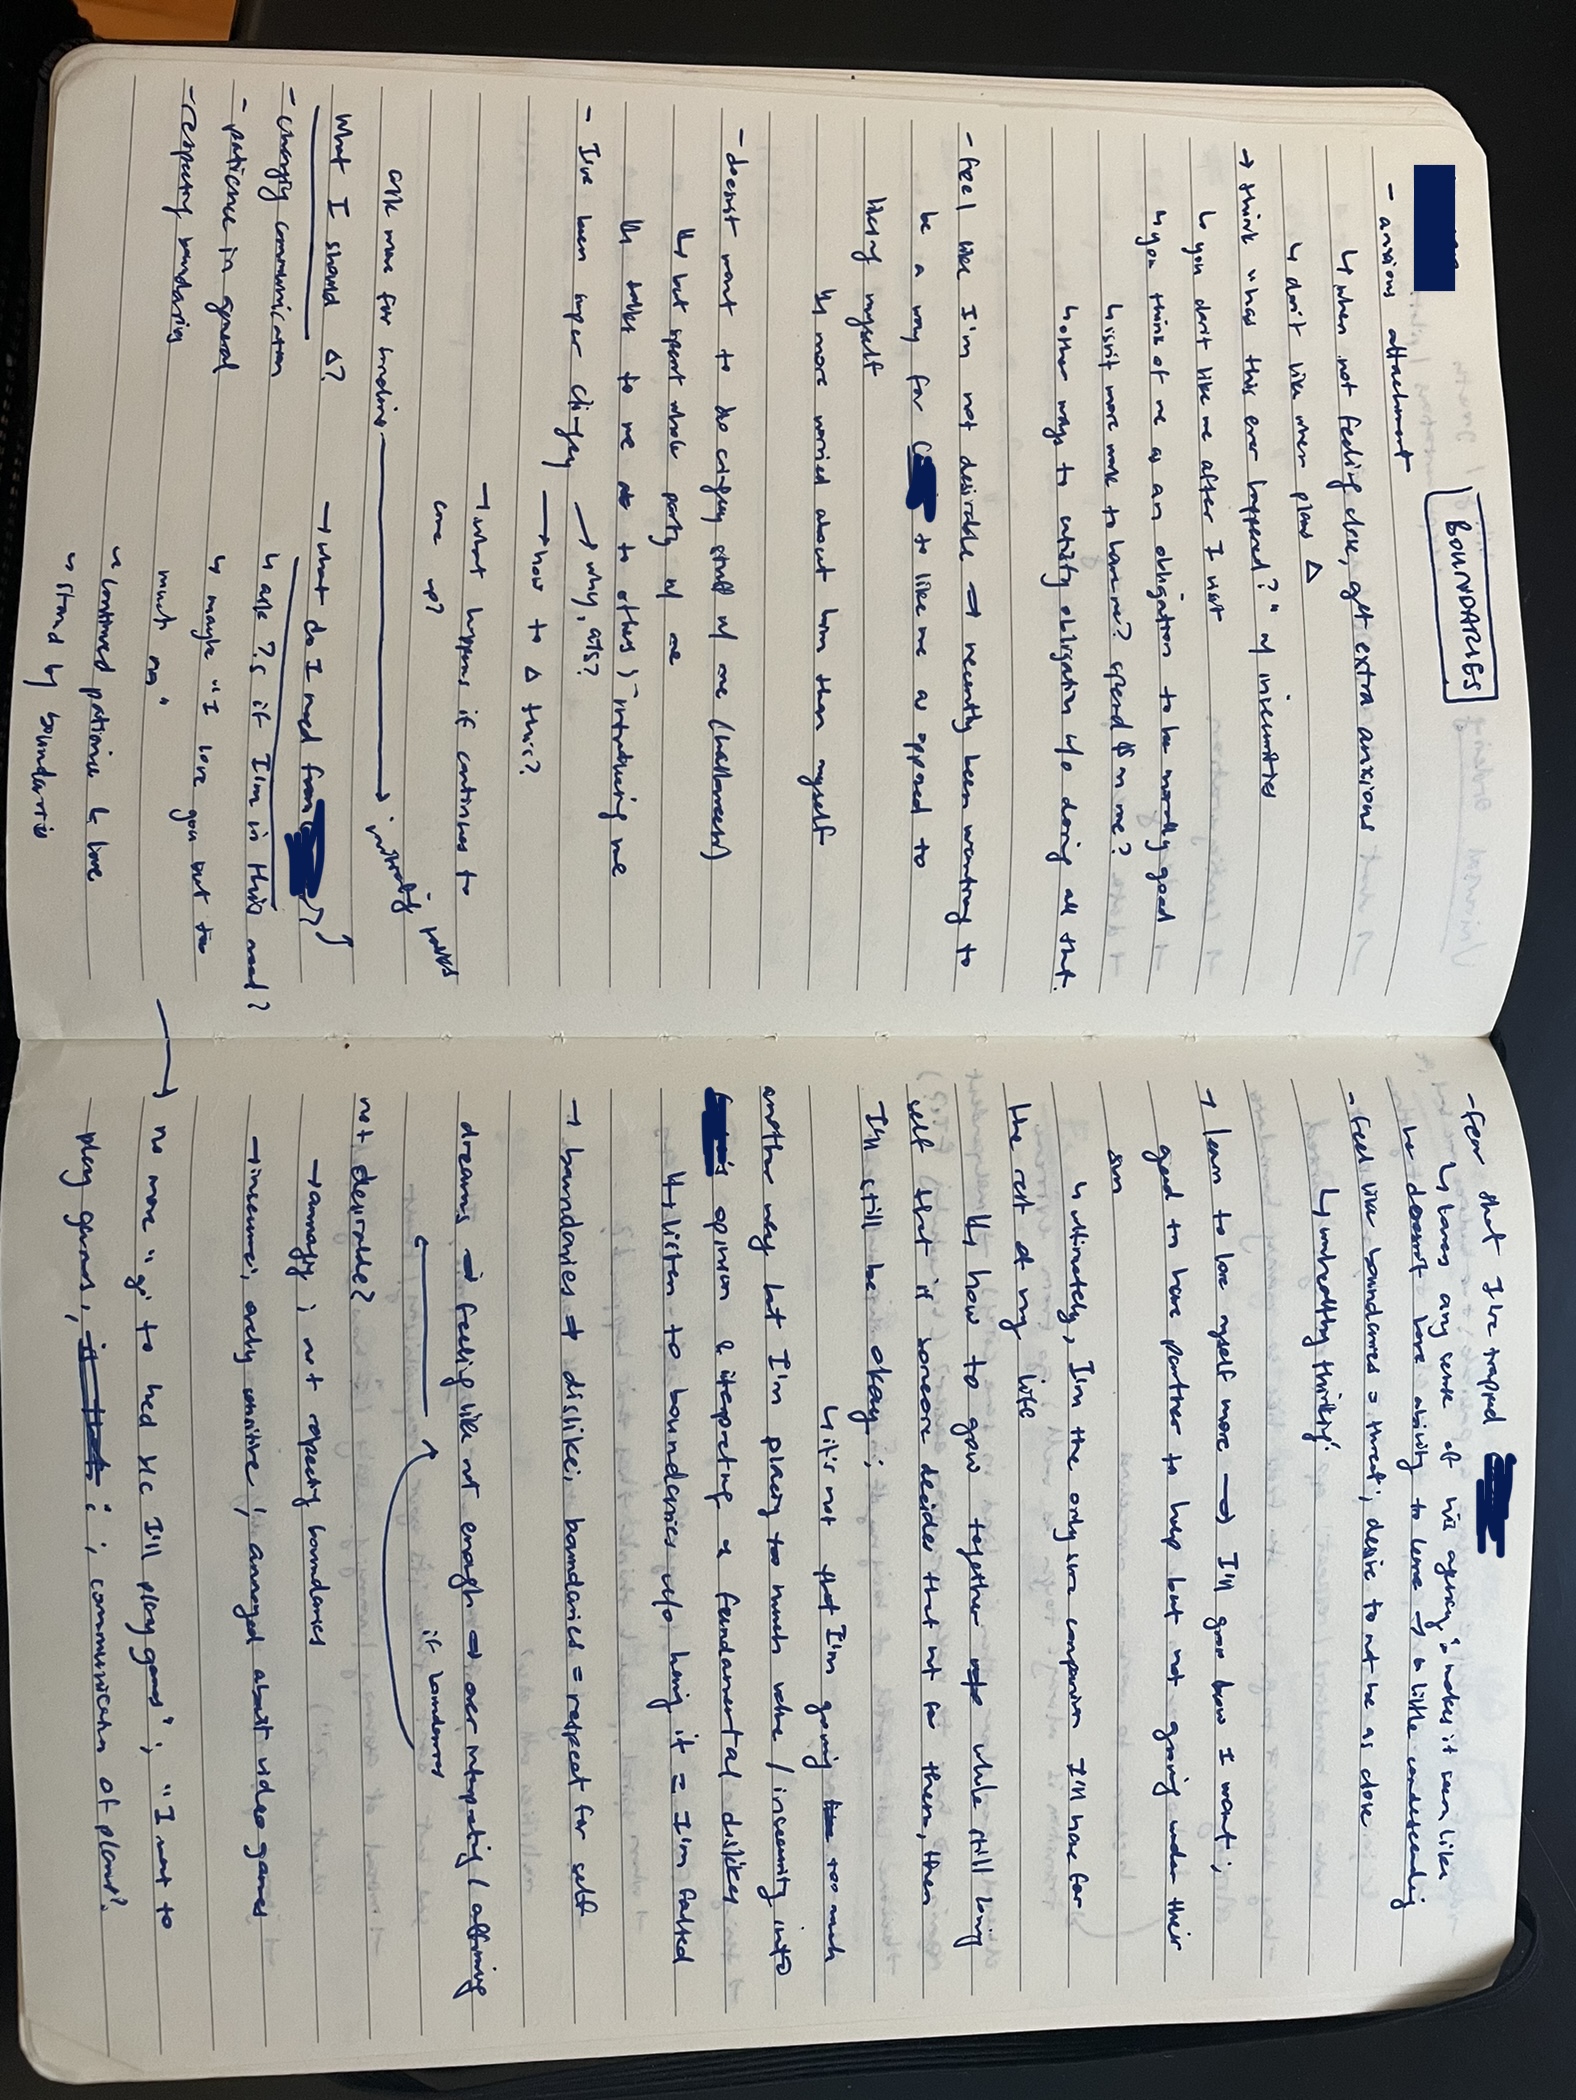 BOUNDARIES
- anxious attachment
↳ when not feeling close, get extra anxious
↳ don't like when plans Δ
→ think "has this ever happened?" w/ insecurities
↳ you don't like me after I visit
↳ you think of me as an obligation to be morally good
↳ isn't more work to have me? spend $ on me?
↳ other ways to satisfy obligation w/o doing all that.
- feel like I'm not desirable → recently been wanting to
be a way for to like me as opposed to
liking myself
↳ more worried about him than myself
- doesn't want to do stuff w/ me (halloween)
↳ but spent whole party w/ me
↳ talks to me to others; introducing me
- I've been super clingey → why,
→ how to Δ this?
→ what happens if continues to
come up?
ask more for → initiating
What I should Δ?
- changing communication
- patience in general
- respecting boundaries
→ what do I need from ?
↳ ask ?s if I'm in this mood?
↳ maybe "I love you but too
much rn"
↳ continued patience & love
↳ stand by boundaries
- fear that I've trapped
↳ leaves any sense of his agency; makes it seem like
he doesn't have ability to leave → a little condescending
- feel like boundaries = threat; desire to not be as close
↳ unhealthy thinking
→ learn to love myself more → I'll grow how I want;
good to have partner to help but not growing under their
sun
↳ ultimately, I'm the only sure companion I'll have for
the rest of my life
↳ how to grow together while still loving
self that if someone decides that not for them, then
I'll still be okay;
↳ it's not that I'm giving too much
another way but I'm placing too much value / insecurity into
opinion & interpreting a fundamental dislikes
↳ listen to boundaries w/o having it = I'm failed
→ boundaries ≠ dislike; boundaries = respect for self
dreams → feeling like not enough → over interpreting / affirming
if boundaries
not desirable?
→ annoying; not respecting boundaries
→ insecure; overly sensitive; annoyed about video games
→ no more "go to bed b/c I'll play games"; "I want to
play games, ; communication of plans?